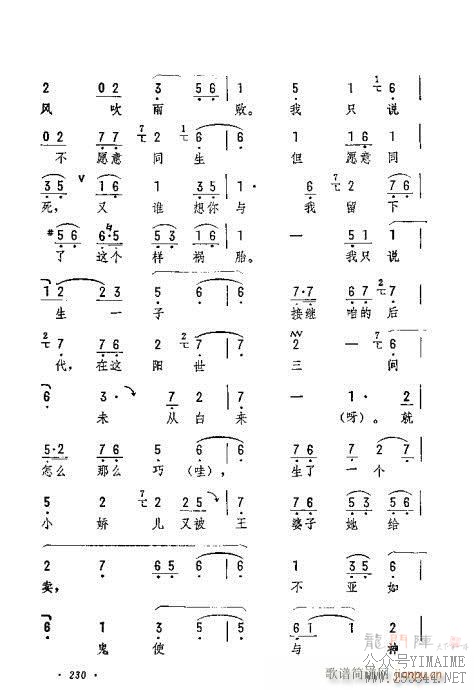 2 0 2 3 5 6 | 1 5 1 6
风 吹 雨 败。 我 只 说
0 2 7 7 7 2 6 | 6 1 1 6 1
不 愿意 同 生 但 愿意 同
3 5 V 1 6 1 3 5 | 1 · 6 7 2 2
死， 又 谁 想你 与 我 留 下
#5 6 6·5 5 3 1 6 | 1 — 5 1 1
了 这个 样 祸 胎。 我只 说
1 2 2 3 5 6 | 6 7·7 6 7 2 5
生 一 子 接继 咱的 后
2 7 7 6 2 2 | 7 7 6 2 3
代， 在这 阳 世 三 间
6 3 · 5 7 | 6 1 · 2
未 从白 来 (呀)。 就
5·2 7 6 5 6 | 6 7 6 5 6
怎么 那么 巧(哇)， 生了 一 个
5 2 7 2 5 5 | 2 7 6 5 6
小 娇 儿 又被 王 婆子 她 给
2 7 6 5 | 5 2 3 5 5
卖， 不 亚 如
6 1 6 5 | 5 1 6
鬼 使 与 神
· 230 ·
龍門陣
公众号YIMAIME
歌谱简谱网